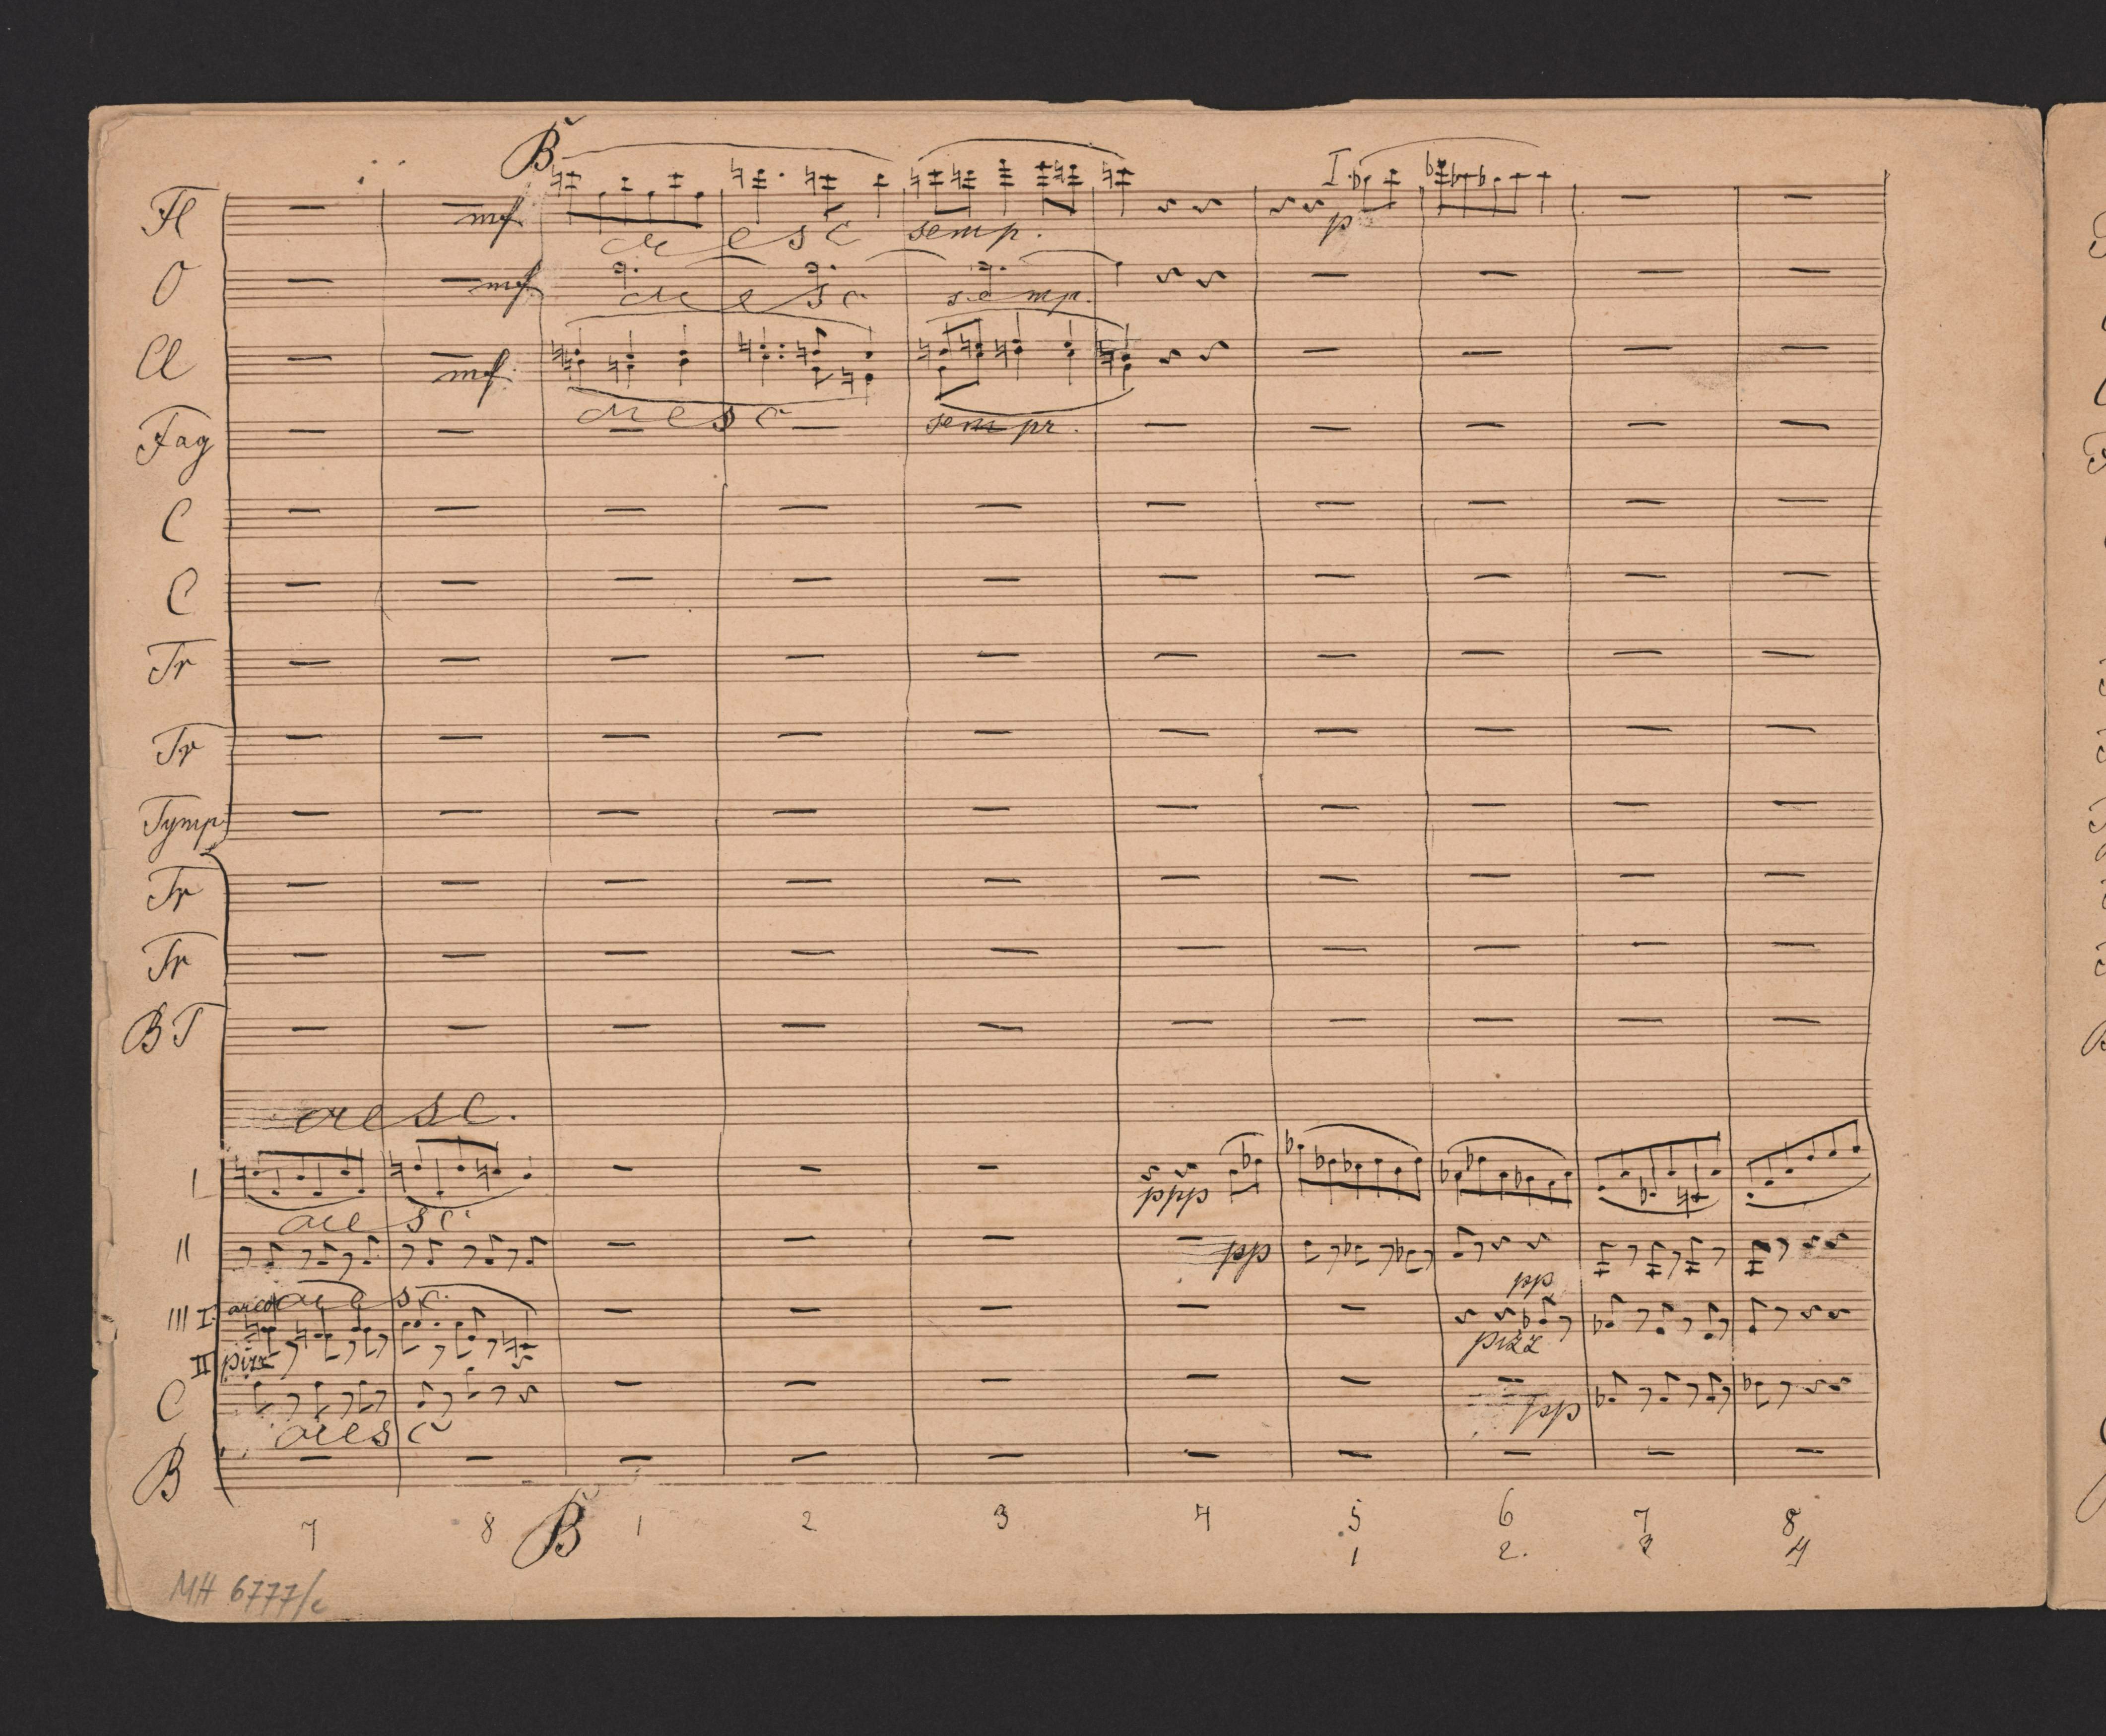 B
Fl mf I. p
cresc semp.
O mf
cresc semp.
Cl mf
cresc sempr.
Fag
C
C
Tr
Tr
Tymp
Tr
Tr
BT
cresc.
I ppp
cresc
II pp
pp
III I. arco cresc.
pizz
II pizz
C pp
cresc
B
7 8 B 1 2 3 4 5 6 7 8
1 2. 3 4
MH 6777/c